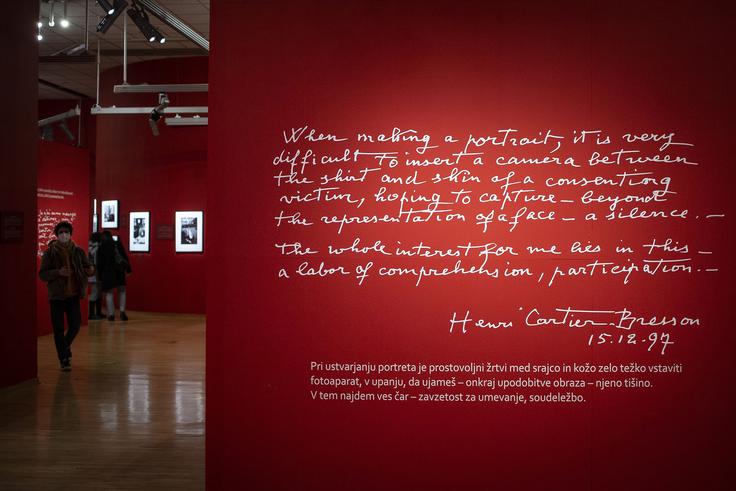 When making a portrait, it is very
difficult to insert a camera between
the shirt and skin of a consenting
victim, hoping to capture – beyond
the representation of a face – a silence. –
The whole interest for me lies in this –
a labor of comprehension, participation. –
Henri Cartier-Bresson
15.12.97
Pri ustvarjanju portreta je prostovoljni žrtvi med srajco in kožo zelo težko vstaviti
fotoaparat, v upanju, da ujameš – onkraj upodobitve obraza – njeno tišino.
V tem najdem ves čar – zavzetost za umevanje, soudeležbo.